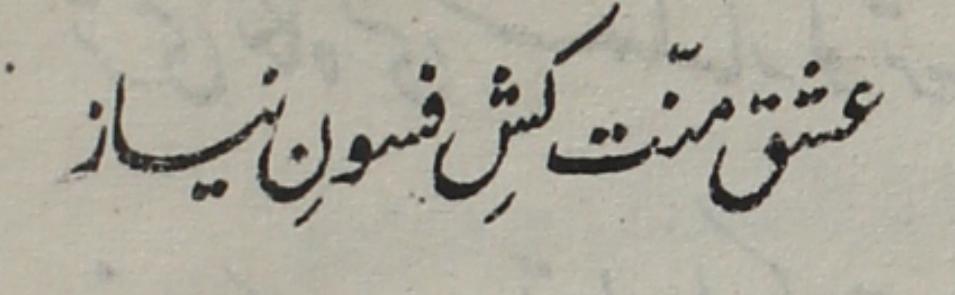 عشق منّت کشِ فسونِ نیاز